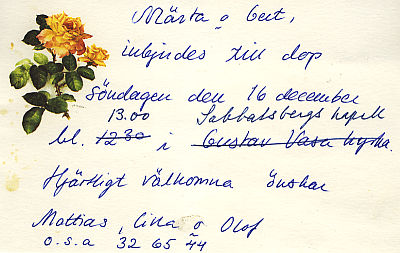 Märta o Gert,
inbjudes till dop
Söndagen den 16 december
13.00 Sabbatsbergs kyrk
kl. 1230 i Gustav Vasa kyrka.
Hjärtligt välkomna önskar
Mattias, Cilla o Olof
o.s.a 32 65 44